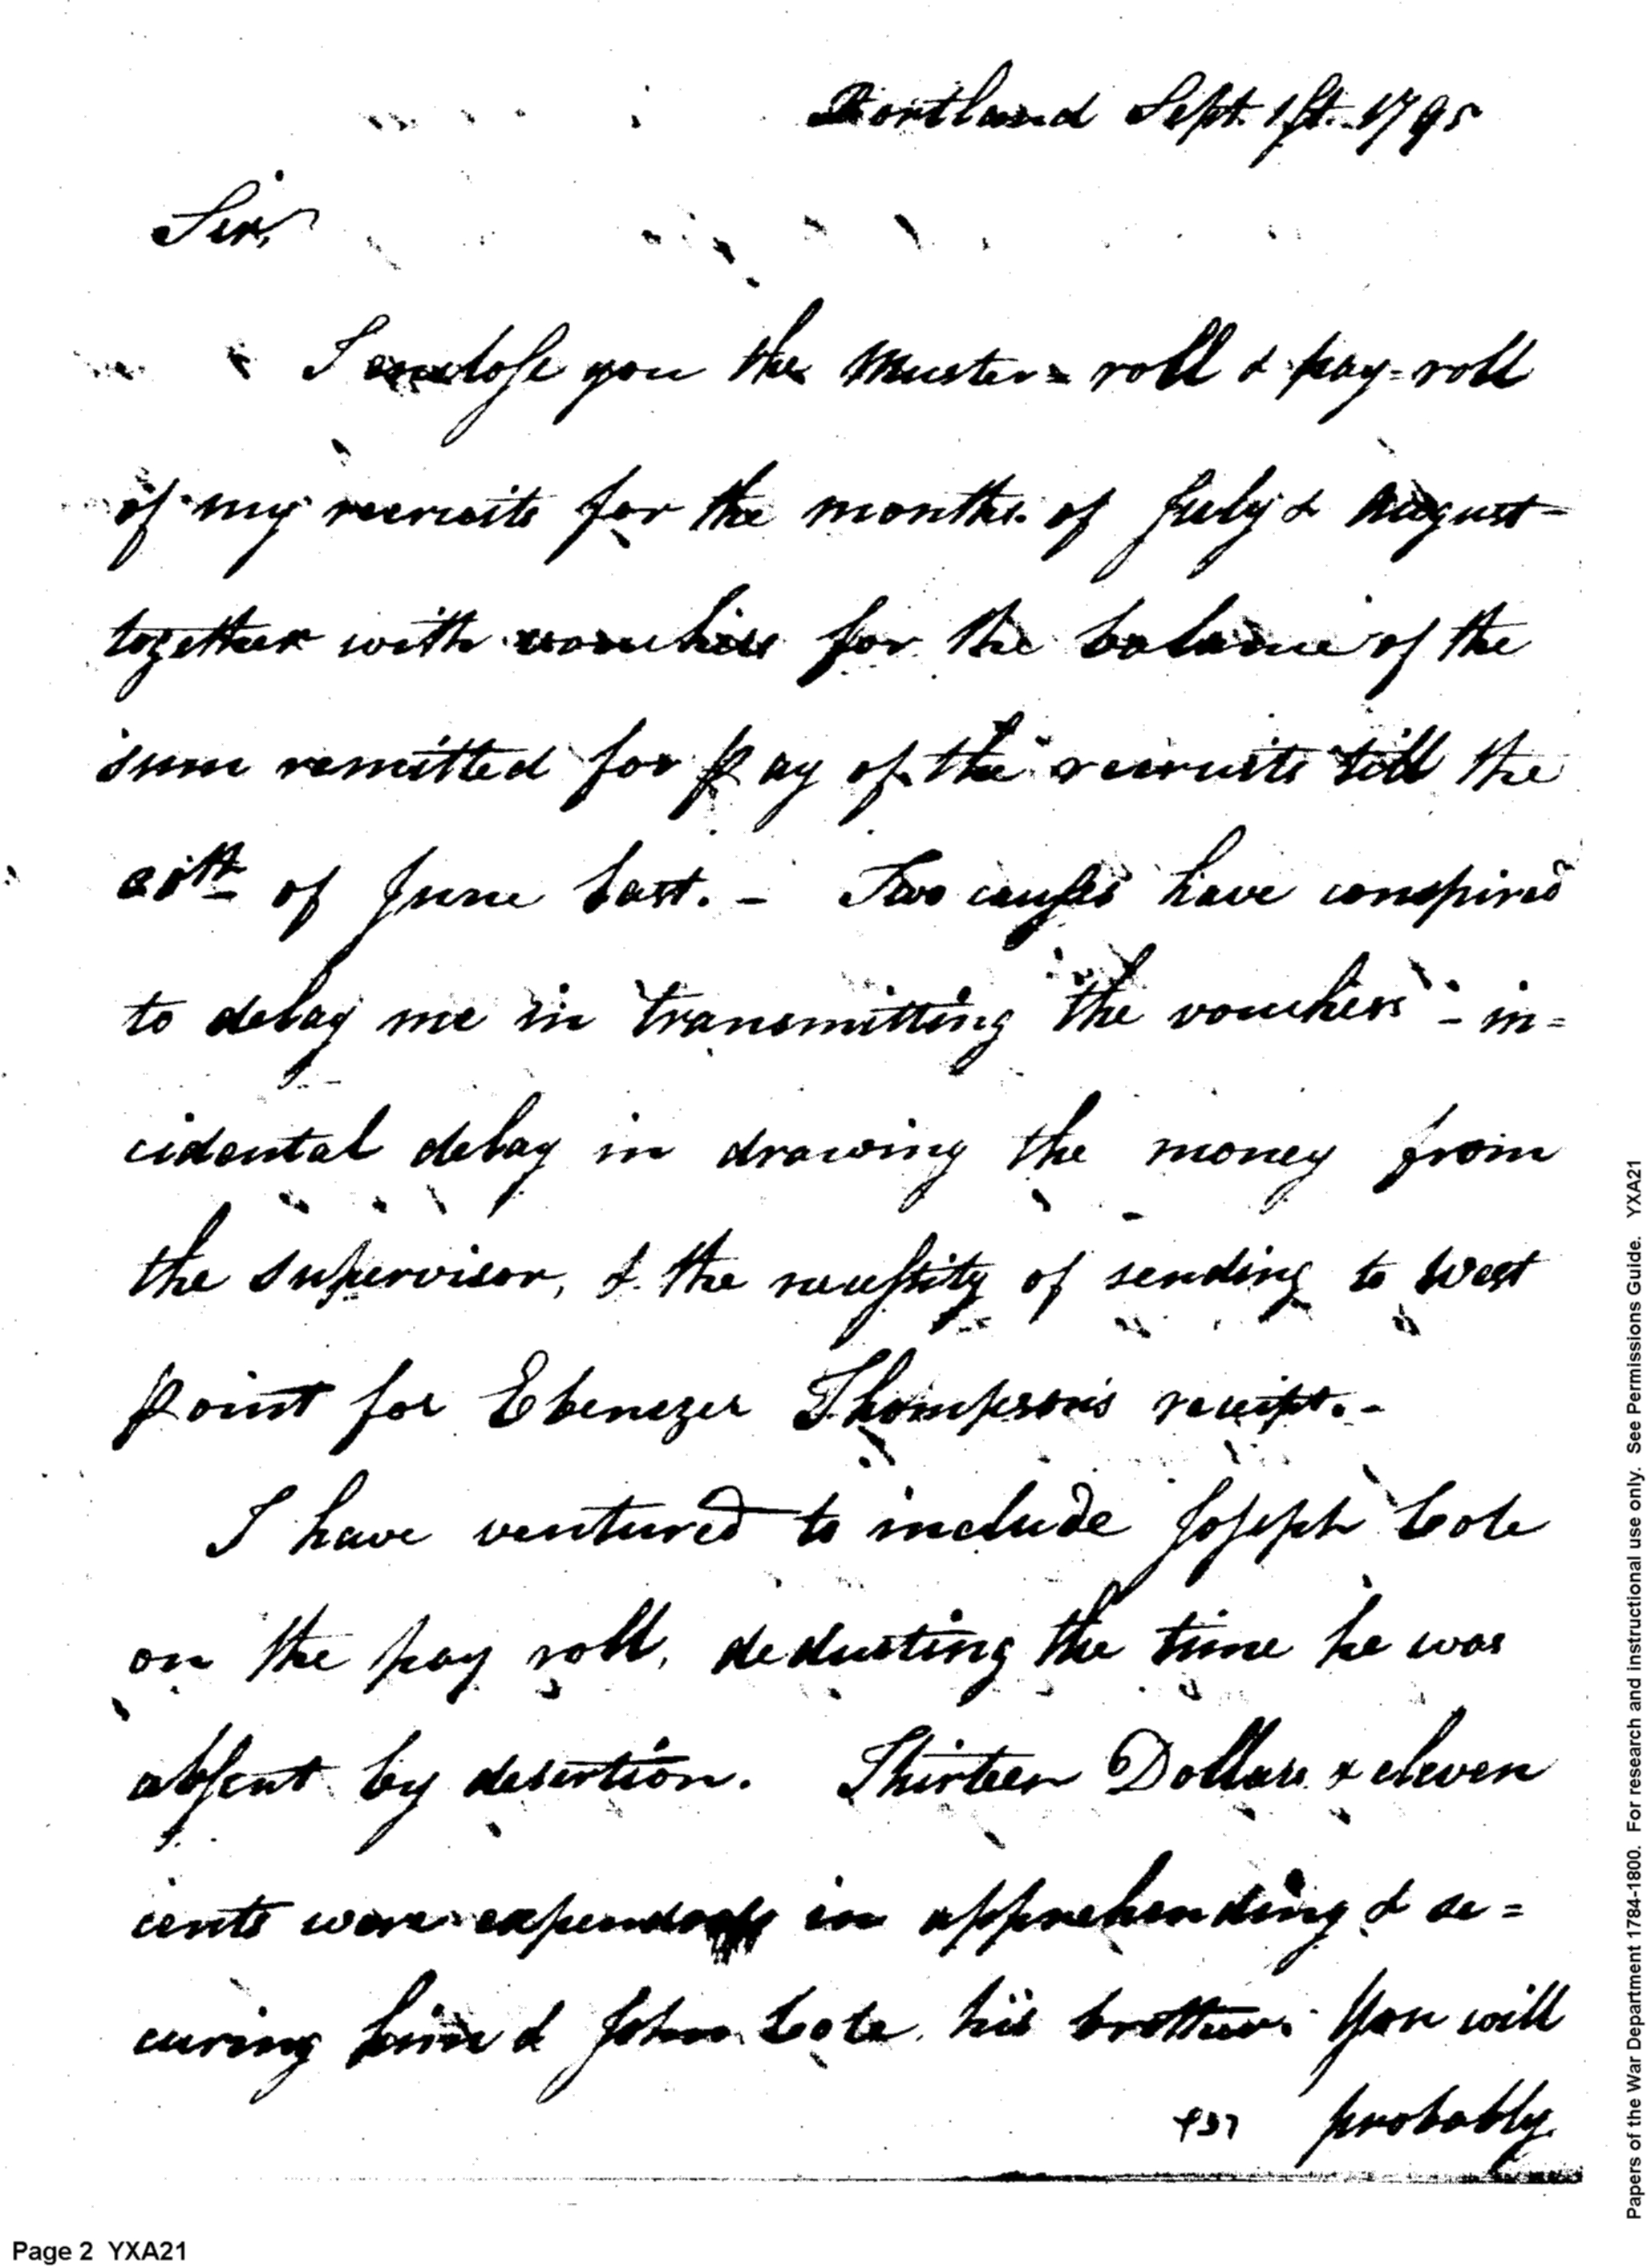 Portland Sept. 1st. 1795
Sir,
I enclose you the Muster=roll & pay=roll
of my recruits for the months of July & August
together with vouchers for the balance of the
sum remitted for pay of the recruits till the
of June last. - Two causes have conspired
to delay me in transmitting the vouchers - in=
cidental delay in drawing the money from
the supervisor, & the necessity of sending to West
point for Ebenezer Thompson's receipt. -
I have ventured to include Joseph Cole
on the pay roll, deducting the time he was
absent by desertion. Thirteen Dollars & eleven
cents were expended in apprehending & se=
curing him & John Cole his brother. You will
probably
Page 2 YXA21
Papers of the War Department 1784-1800. For research and instructional use only. See Permissions Guide. YXA21